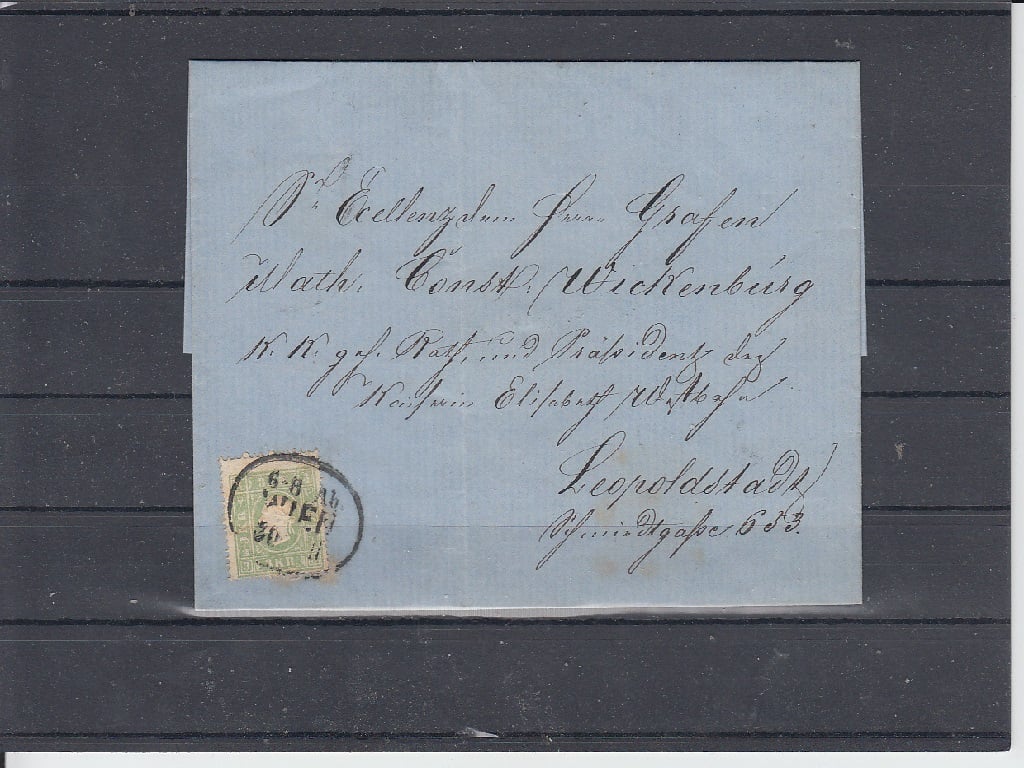 Sr Exellenz dem Herrn Grafen
Math. Const. Wickenburg
K. K. geh. Rath, und Präsident der
Kaiserin Elisabeth Westbahn
Leopoldstadt
Schmidtgasse 653.
6-8 Ab
WIEN
30 11